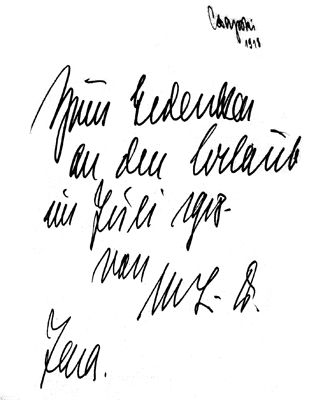 1918
Zum Gedenken
an den Urlaub
im Juli 1918.
von
Jena.